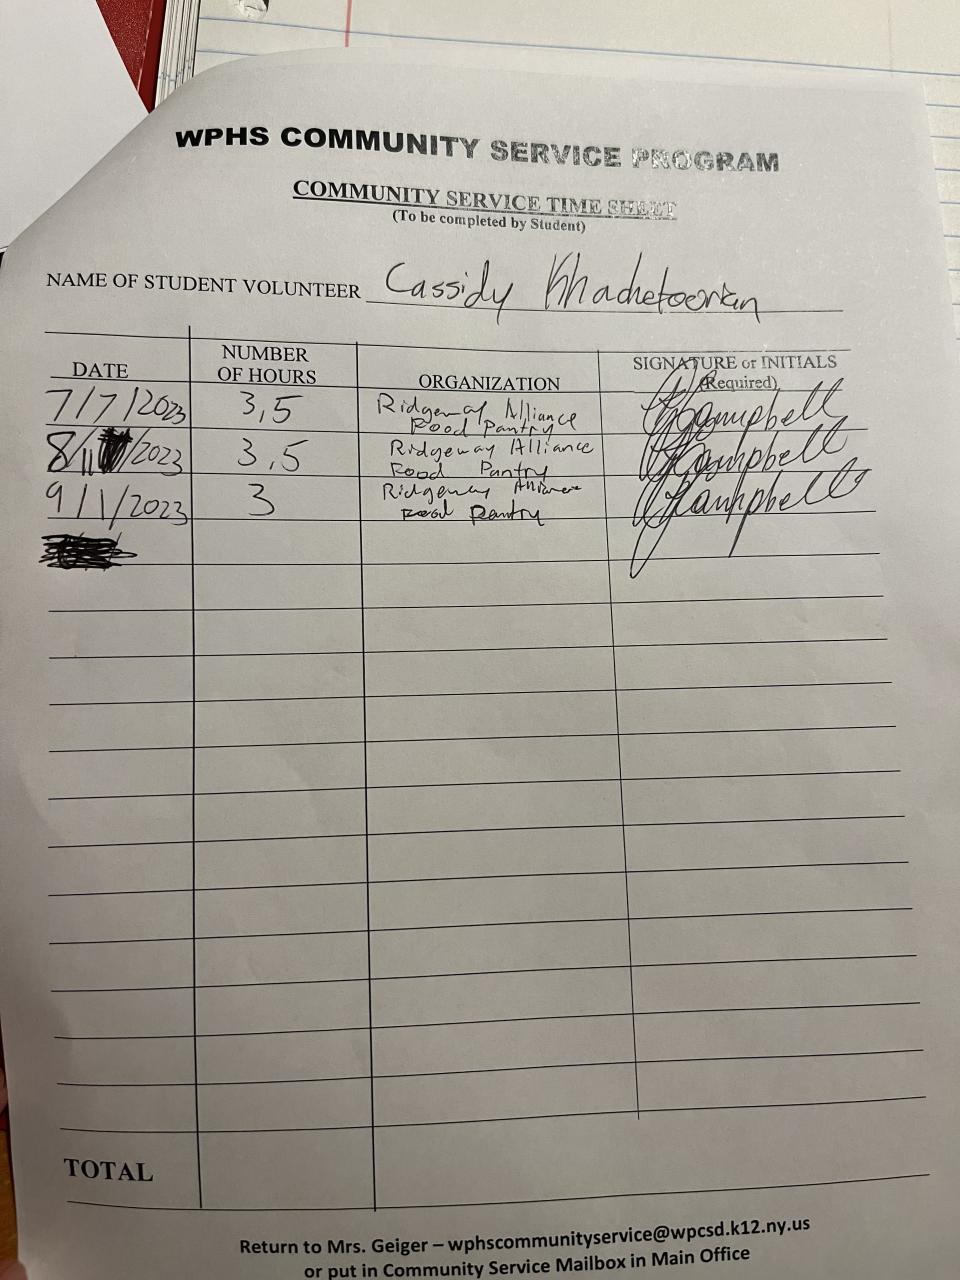 WPHS COMMUNITY SERVICE PROGRAM
COMMUNITY SERVICE TIME SHEET
(To be completed by Student)
NAME OF STUDENT VOLUNTEER Cassidy
DATE NUMBER OF HOURS ORGANIZATION SIGNATURE or INITIALS (Required)
7/7/2023 3,5 Ridgeway Alliance Food Pantry Campbell
8/11/2023 3,5 Ridgeway Alliance Food Pantry Campbell
9/1/2023 3 Ridgeway Alliance Food Pantry Campbell
TOTAL
Return to Mrs. Geiger – wphscommunityservice@wpcsd.k12.ny.us
or put in Community Service Mailbox in Main Office